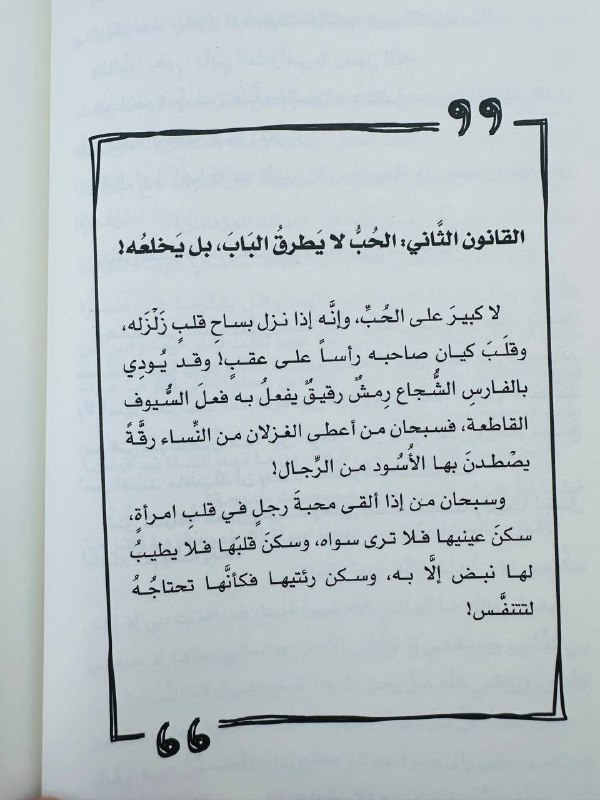 القانون الثَّاني: الحُبُّ لا يَطرقُ البَابَ، بل يَخلعُه!
لا كبيرَ على الحُبِّ، وإنَّه إذا نزل بساحِ قلبٍ زَلْزَله،
وقلَبَ كيان صاحبه رأساً على عقبٍ! وقد يُودِي
بالفارسِ الشُّجاع رِمشٌ رقيقٌ يفعلُ به فعلَ السُّيوف
القاطعة، فسبحان من أعطى الغزلان من النِّساء رقَّةً
يصْطدنَ بها الأُسُود من الرِّجال!
وسبحان من إذا ألقى محبةَ رجلٍ في قلبِ امرأةٍ،
سكنَ عينيها فلا ترى سواه، وسكنَ قلبَها فلا يطيبُ
لها نبض إلَّا به، وسكن رئتيها فكأنَّها تحتاجُهُ
لتتنفَّس!